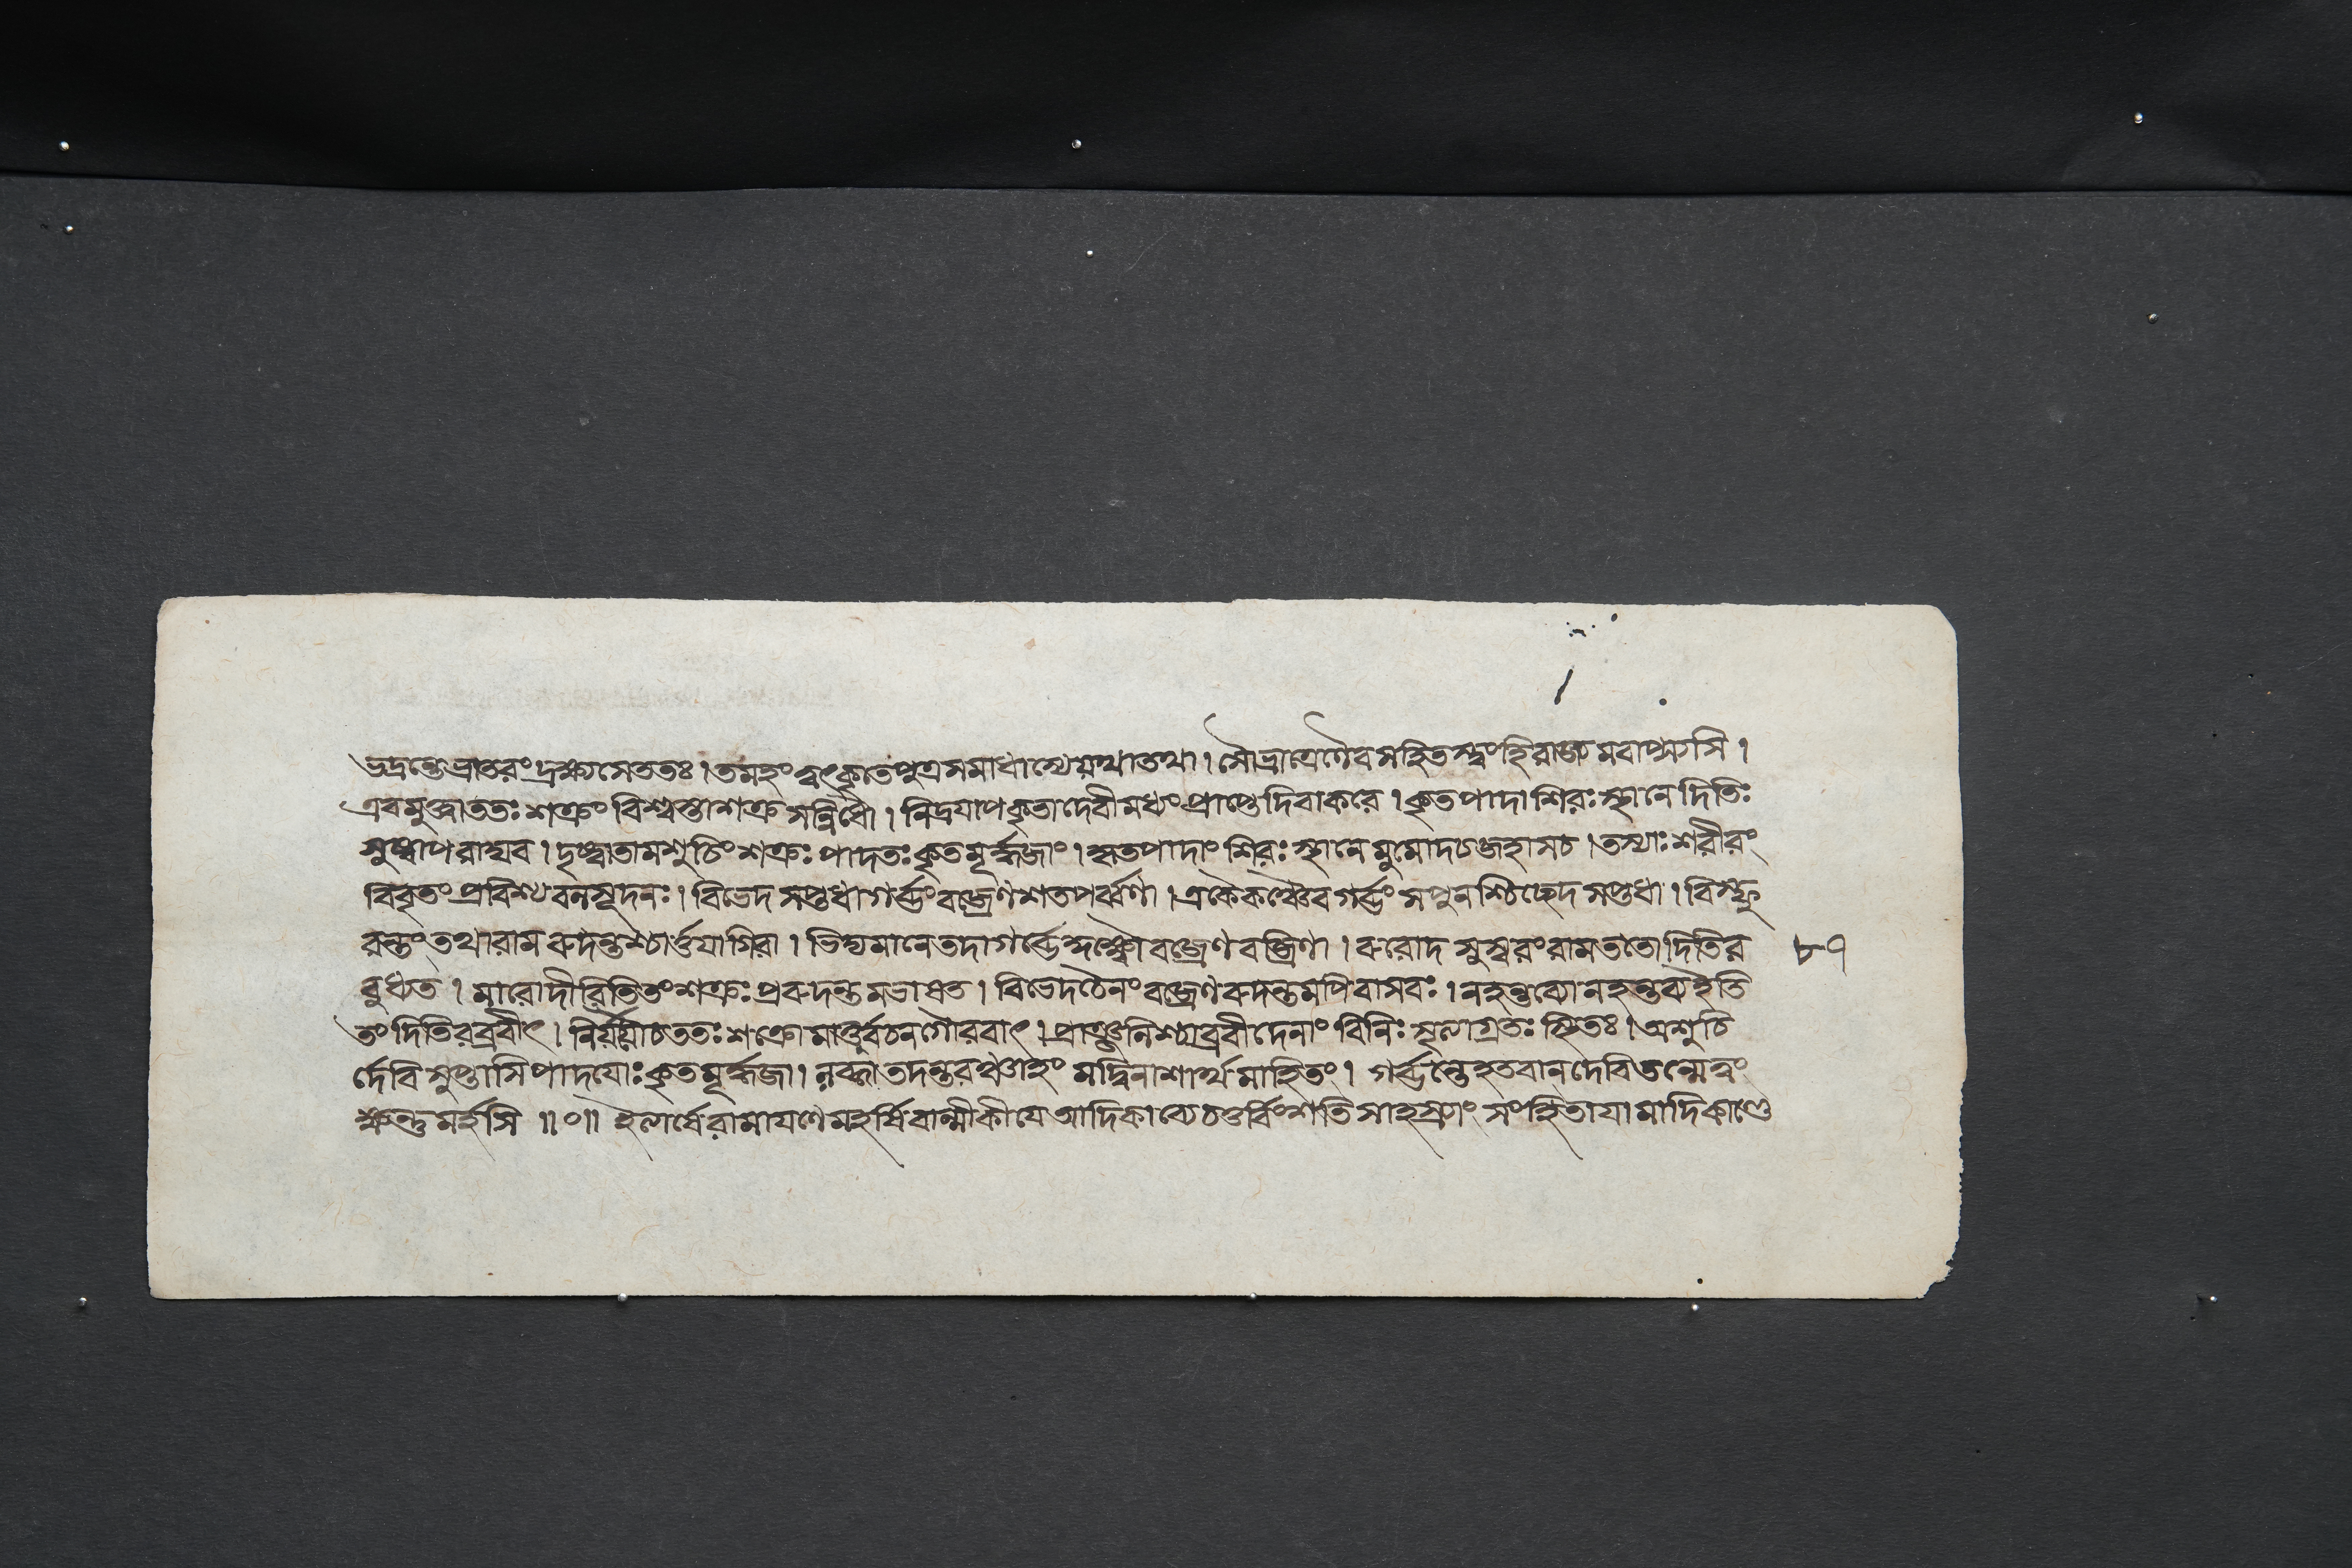 ভদ্রন্তেভ্রাতরংদ্রক্ষ্যসেততঃ। তমহংত্বৎকৃতেপুত্রসমাধাস্যেযথাতথা। সৌভ্রাত্রেণৈবসহিতস্ত্বংহিরাজ্যমবাপ্স্যসি।
এবমুক্ত্বাততঃশক্রংবিশ্বস্তাশক্রসন্নিধৌ। নিদ্রযাপকৃতাদেবীমধ্যংপ্রাপ্তেদিবাকরে। কৃতপাদাশিরঃস্থানেদিতিঃ
সুষ্বাপরাঘব। দৃষ্ট্বাতামশুচিংশক্রঃপাদতঃকৃতমূর্দ্ধজাং। কৃতপাদাংশিরঃস্থানেমুমোদচজহাসচ। তস্যাঃশরীরং
বিবৃতংপ্রবিশ্যবলসূদনঃ। বিভেদসপ্তধাগর্ব্ভংবজ্রেণশতপর্ব্বণা। একৈকঞ্চৈবগর্ব্ভংসপুনশ্চিচ্ছেদসপ্তধা। বিস্ফু
রন্তংতথারামরুদন্তঞ্চার্ত্তযাগিরা। ভিদ্যমানেতদাগর্ব্ভে বজ্রেণবজ্রিণা। রুরোদসুস্বরংরামততোদিতির ৮৭
বুধ্যত। মারোদীরিতিতংশক্রঃপ্ররুদন্তমভাষত। বিভেদচৈনংবজ্রেণরুদন্তমপিবাসবঃ। নহন্তব্যোনহন্তব্যইতি
তংদিতিরব্রবীৎ। নির্যযৌচততঃশক্রোমাতুর্বচনগৌরবাৎ। প্রাঞ্জলিশ্চাব্রবীদেনাংবিনিঃসৃত্যাগ্রতঃস্থিতঃ। অশুচি
র্দেবিসুপ্তাসিপাদযোঃকৃতমূর্দ্ধজা। লব্ধ্বাতদন্তরঞ্চাহংমদ্বিনাশার্থমাহিতং। গর্ব্ভন্তেহতবানদেবিতন্মেত্বং
ক্ষন্তুমর্হসি॥০॥ ইত্যার্ষেরামাযণেমহর্ষিবাল্মীকীযেআদিকাব্যেচতুর্বিংশতিসাহস্র্যাংসংহিতাযামাদিকাণ্ডে